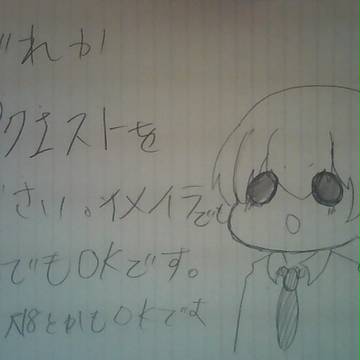 れか
クエストを
さい。イメイラでも
でもOKです。
N8とかもOKです